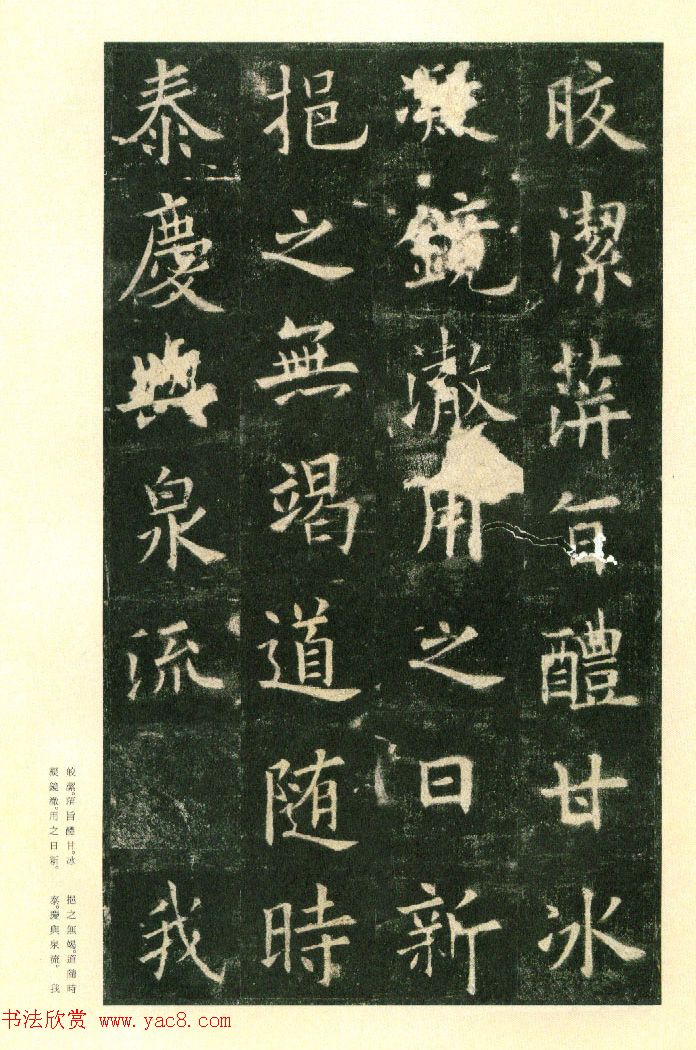 晈潔蓱旨醴甘冰
凝鏡澈用之日新
挹之無竭道随時
泰慶與泉流我
皎潔。蓱旨醴甘。冰
凝鏡澈。用之日新。
挹之無竭。道隨時
泰。慶與泉流。我
书法欣赏 www.yac8.com